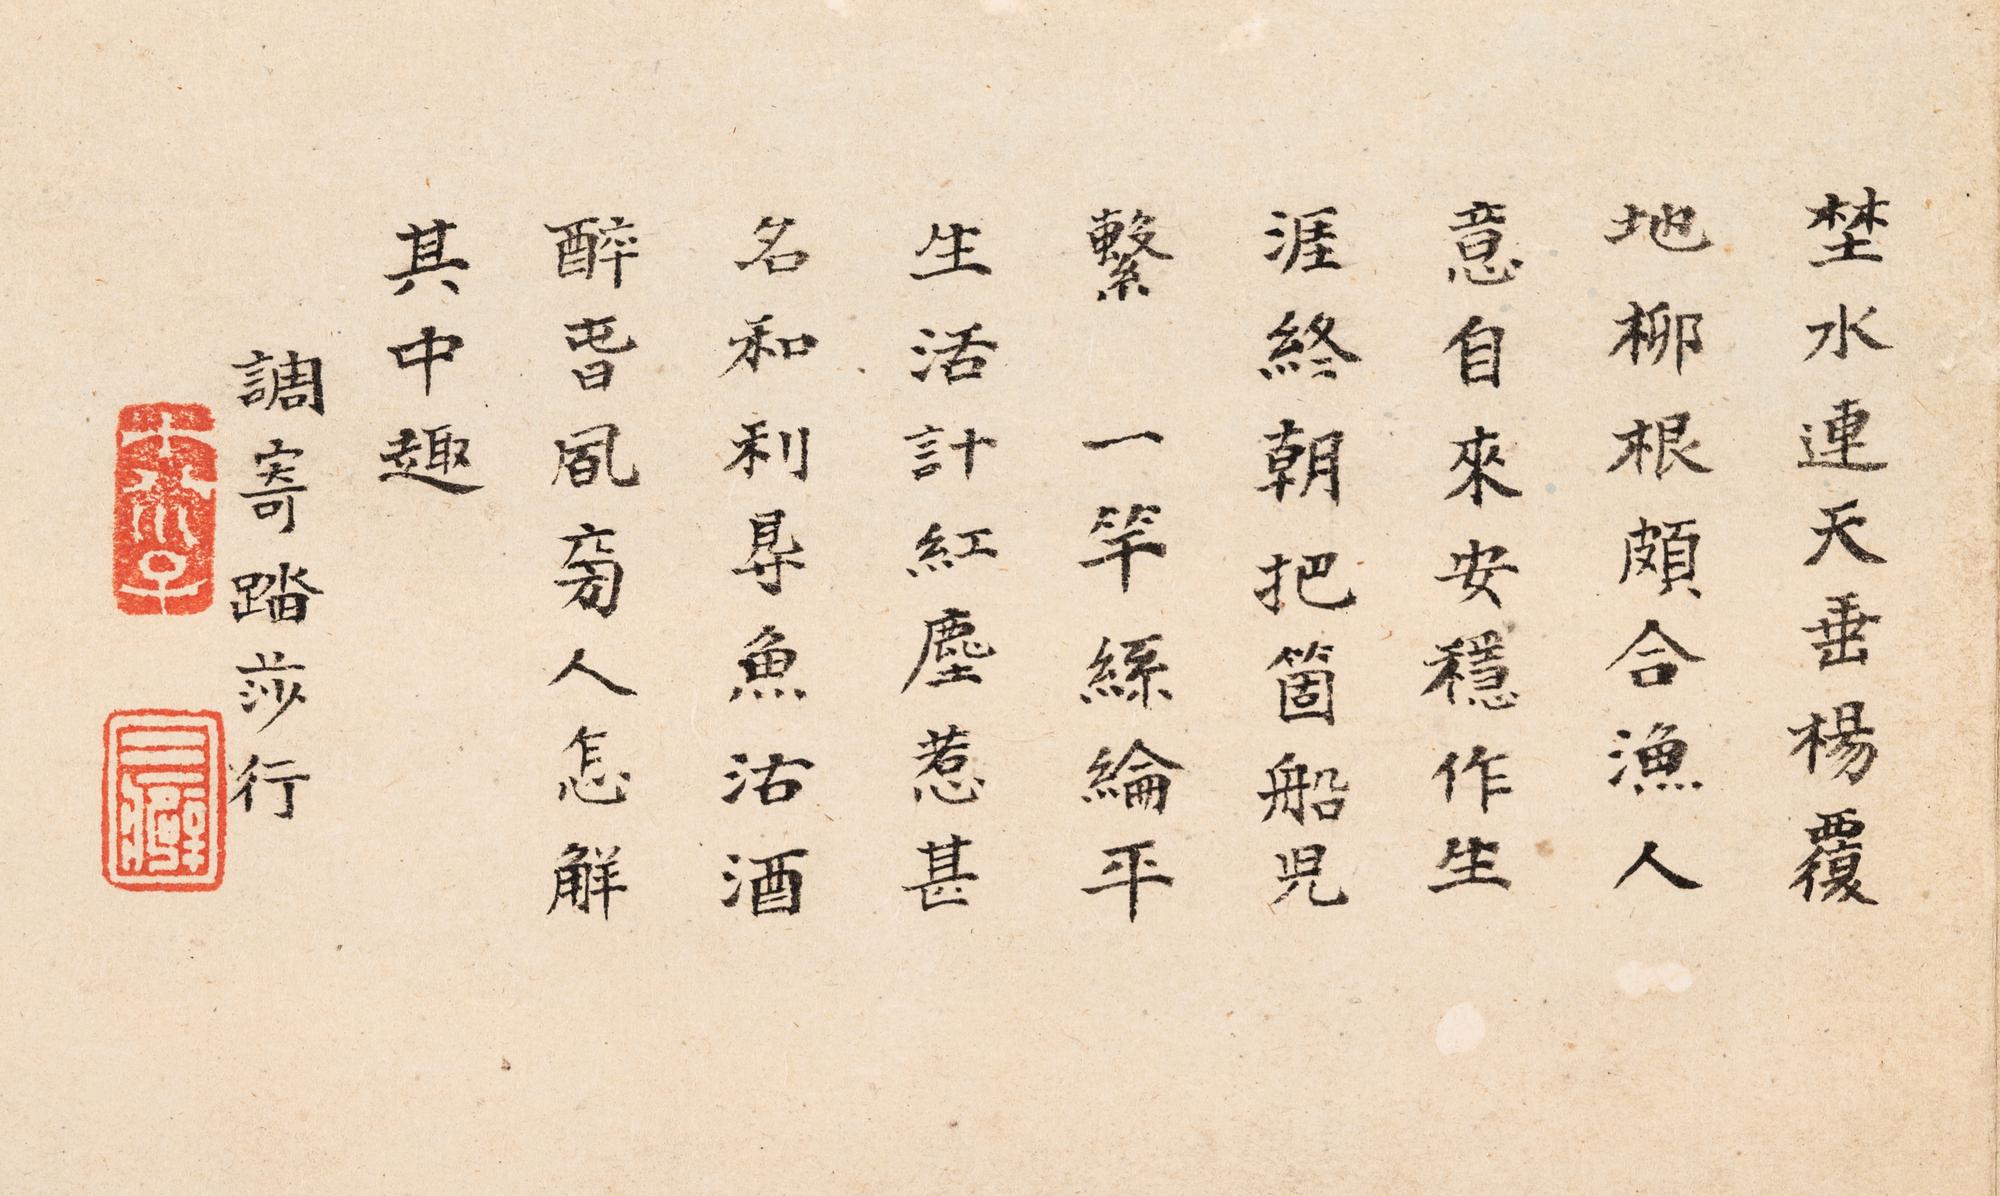 埜水連天垂楊覆
地柳根頗合漁人
意自來安穩作生
涯終朝把箇船児
繫　一竿絲綸平
生活計紅塵惹甚
名和利㝵魚沽酒
醉旹凮㫄人怎解
其中趣
調寄踏莎行